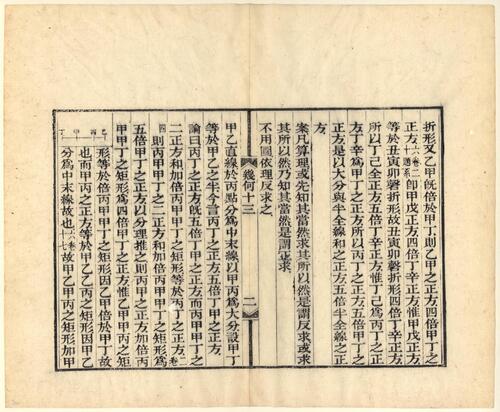 折形及乙甲既倍於甲丁則乙甲之正方四倍甲丁之
正方卽甲戊正方四倍丁辛正方惟甲戊正方
等於丑寅卯磬折形故丑寅卯磬折形四倍丁辛正方
所以丁己全正方五倍丁辛正方惟丁己爲丙丁之正
方丁辛爲甲丁之正方所以丙丁之正方五倍甲丁之
正方是以大分與半全線和之正方五倍半全線之正
方
案凡算理或先知其當然求其所以然是謂反求或求
其所以然乃知其當然是謂正求
不用圖依理反求之
幾何十三
二
甲乙直線於丙點分爲中末線以甲丙爲大分設甲丁
等於甲乙之半今言丙丁之正方五倍甲丁之正方
論曰丙丁之正方既五倍甲丁之正方而丙甲甲丁之
二正方和加倍丙甲甲丁之矩形等於丙丁之正方二卷
四則丙甲甲丁之二正方和加倍丙甲甲丁之矩形爲
五倍甲丁之正方以分理推之則丙甲之正方加倍丙
甲甲丁之矩形爲四倍甲丁之正方惟乙甲甲丙之矩
形等於倍丙甲甲丁之矩形因乙甲倍於甲丁故
也而甲丙之正方等於甲乙乙丙之矩形因甲乙
分爲中末線故也六卷十七故甲乙甲丙之矩形加甲
乙丙甲丁